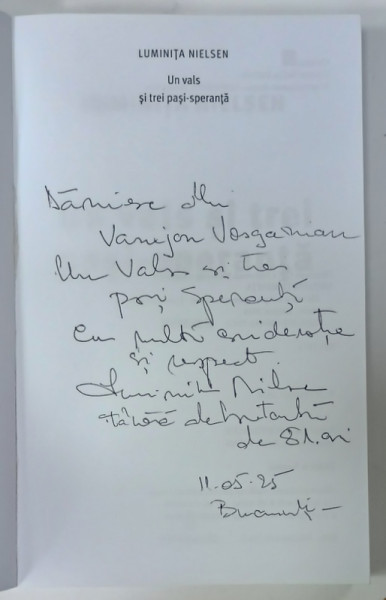 LUMINIȚA NIELSEN
Un vals
și trei pași-speranță
Dăruiesc dlui
Varujan Vosganian
Un Vals și trei
pași Speranță
Cu multă considerație
și respect.
Luminița Nielsen
tânără debutantă
de 81. ani
11.05.25
București